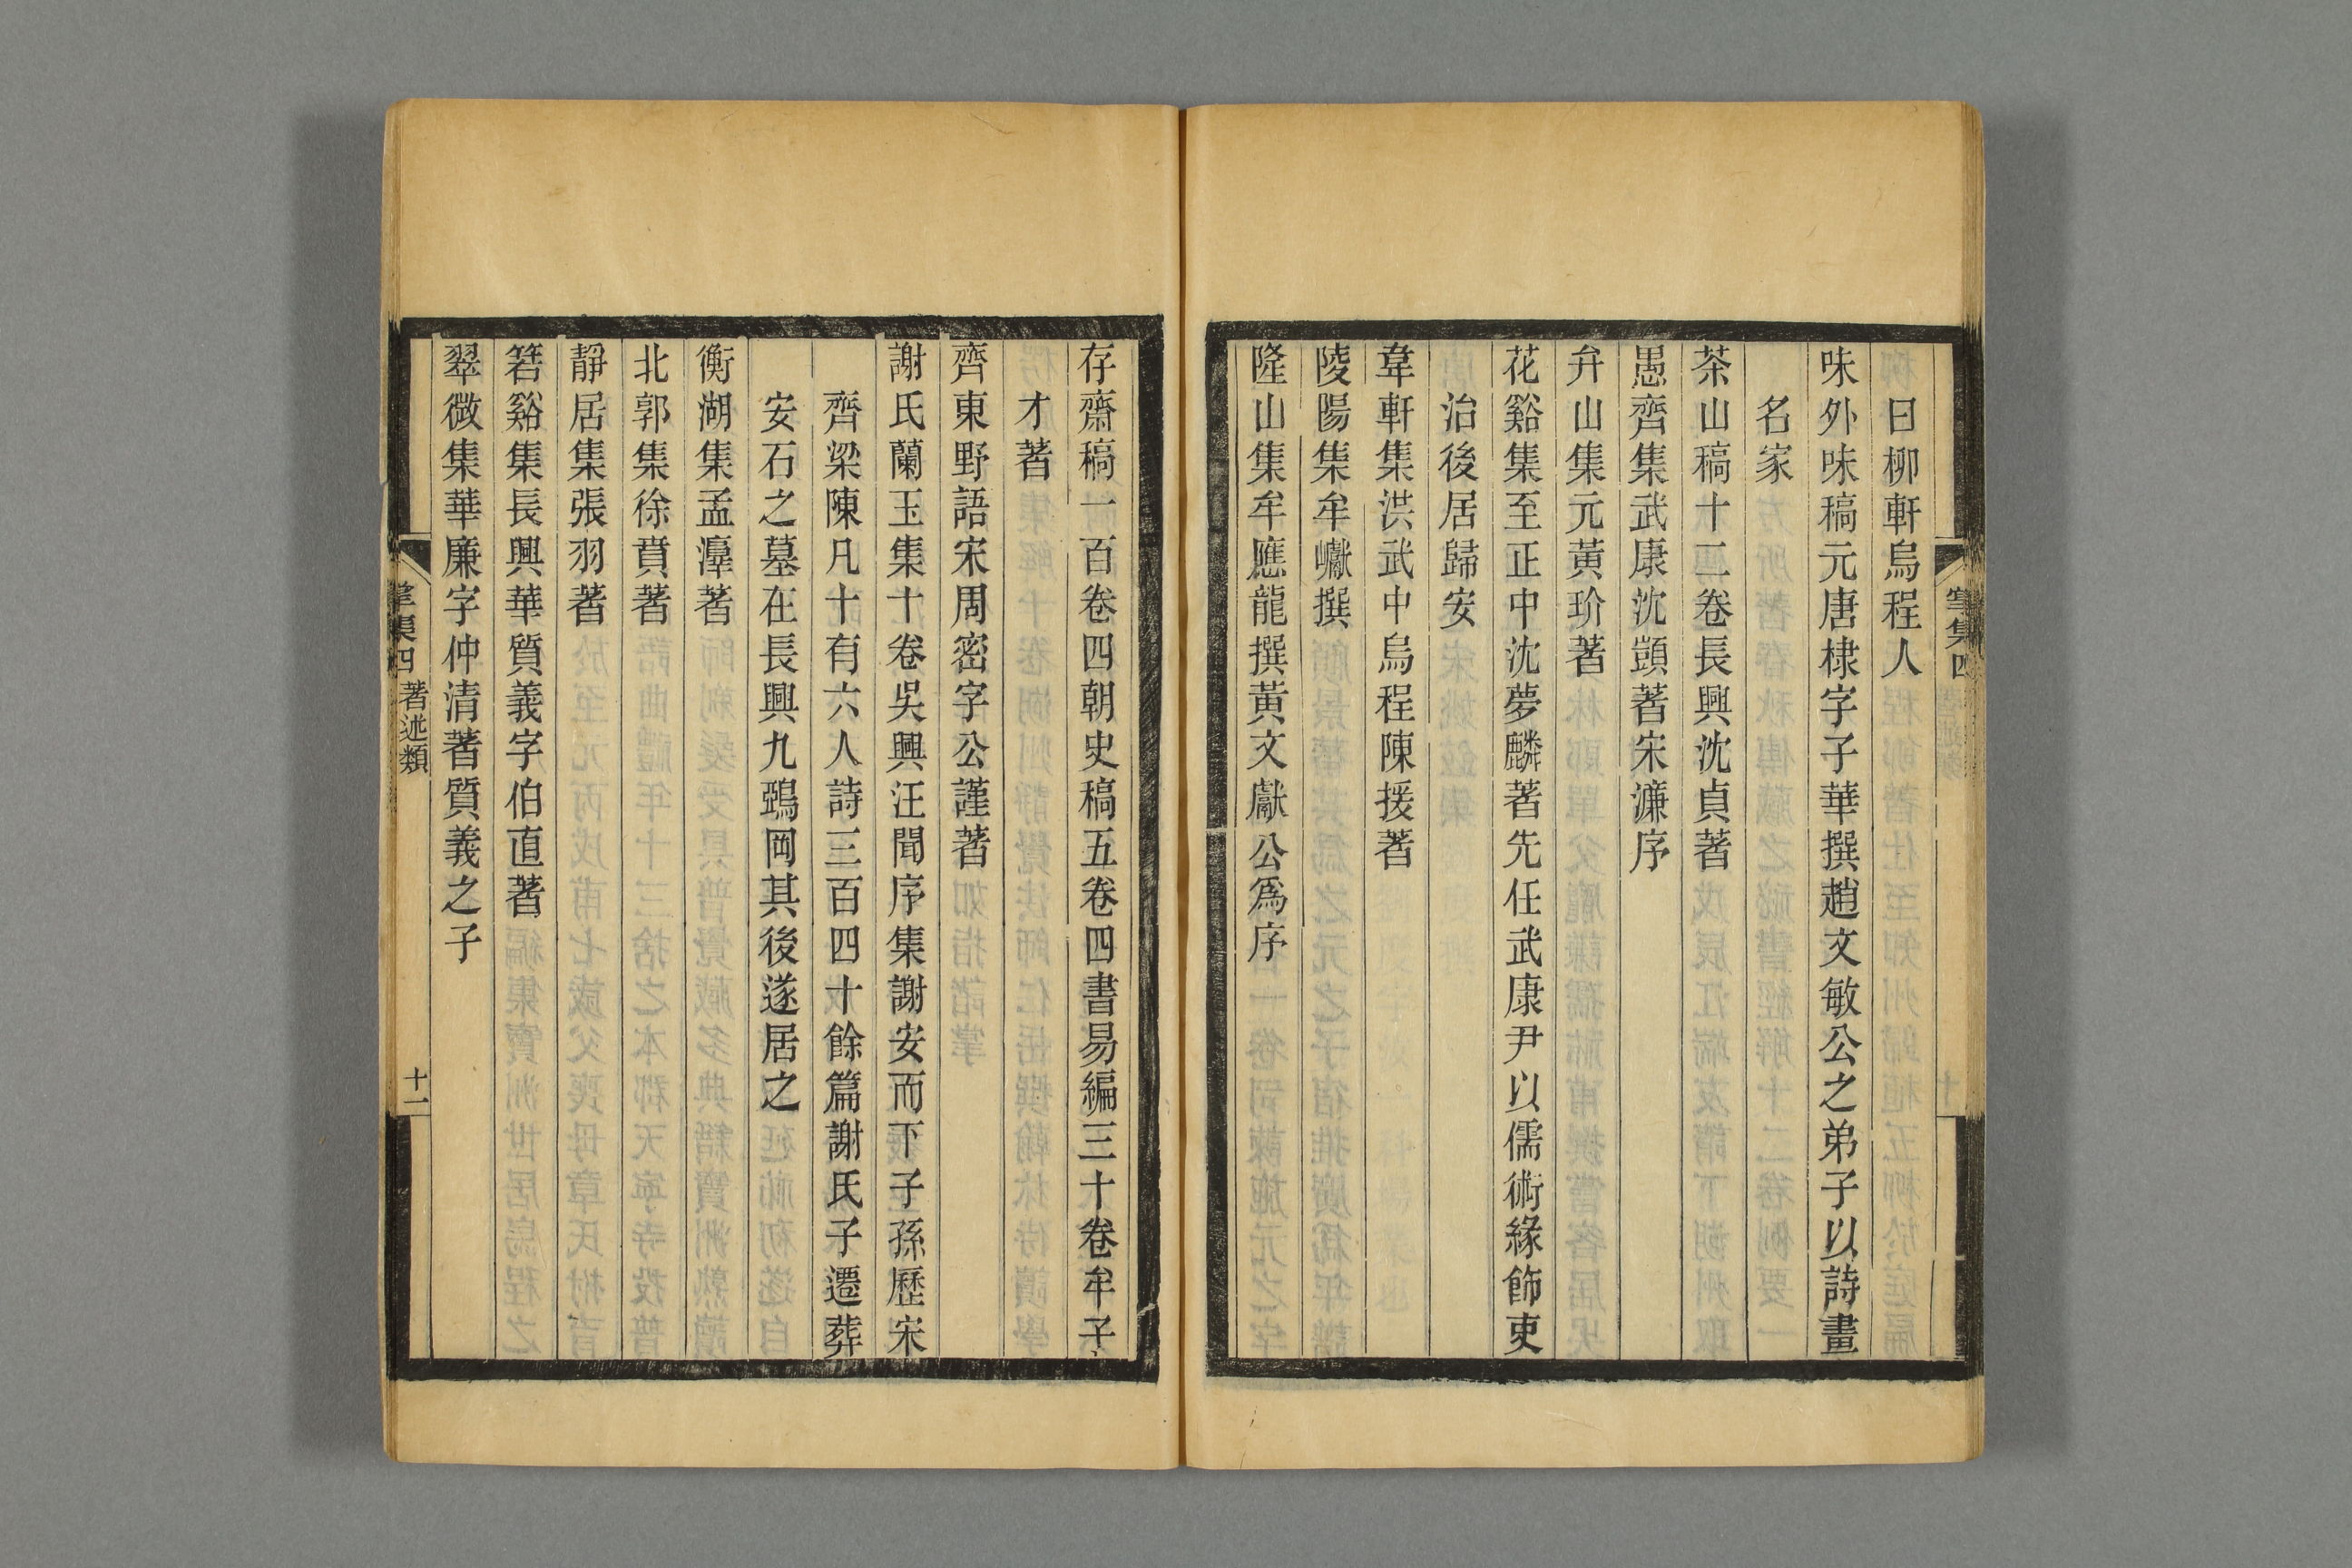 曰柳軒烏程人
味外味稿元唐棣字子華撰趙文敏公之弟子以詩畫
名家
茶山稿十二卷長興沈貞著
愚齊集武康沈顗著宋濂序
弁山集元黃玠著
花谿集至正中沈夢麟著先任武康尹以儒術緣飾吏
治後居歸安
韋軒集洪武中烏程陳援著
陵陽集牟巘撰
隆山集牟應龍撰黃文獻公爲序
存齋稿一百卷四朝史稿五卷四書易編三十卷牟子
才著
齊東野語宋周密字公謹著
謝氏蘭玉集十卷吳興汪聞序集謝安而下子孫歷宋
齊梁陳凡十有六人詩三百四十餘篇謝氏子遷葬
安石之墓在長興九鵶岡其後遂居之
衡湖集孟瀷著
北郭集徐賁著
靜居集張羽著
箬谿集長興華質義字伯直著
翠微集華廉字仲清著質義之子
掌集四 著述類 十一